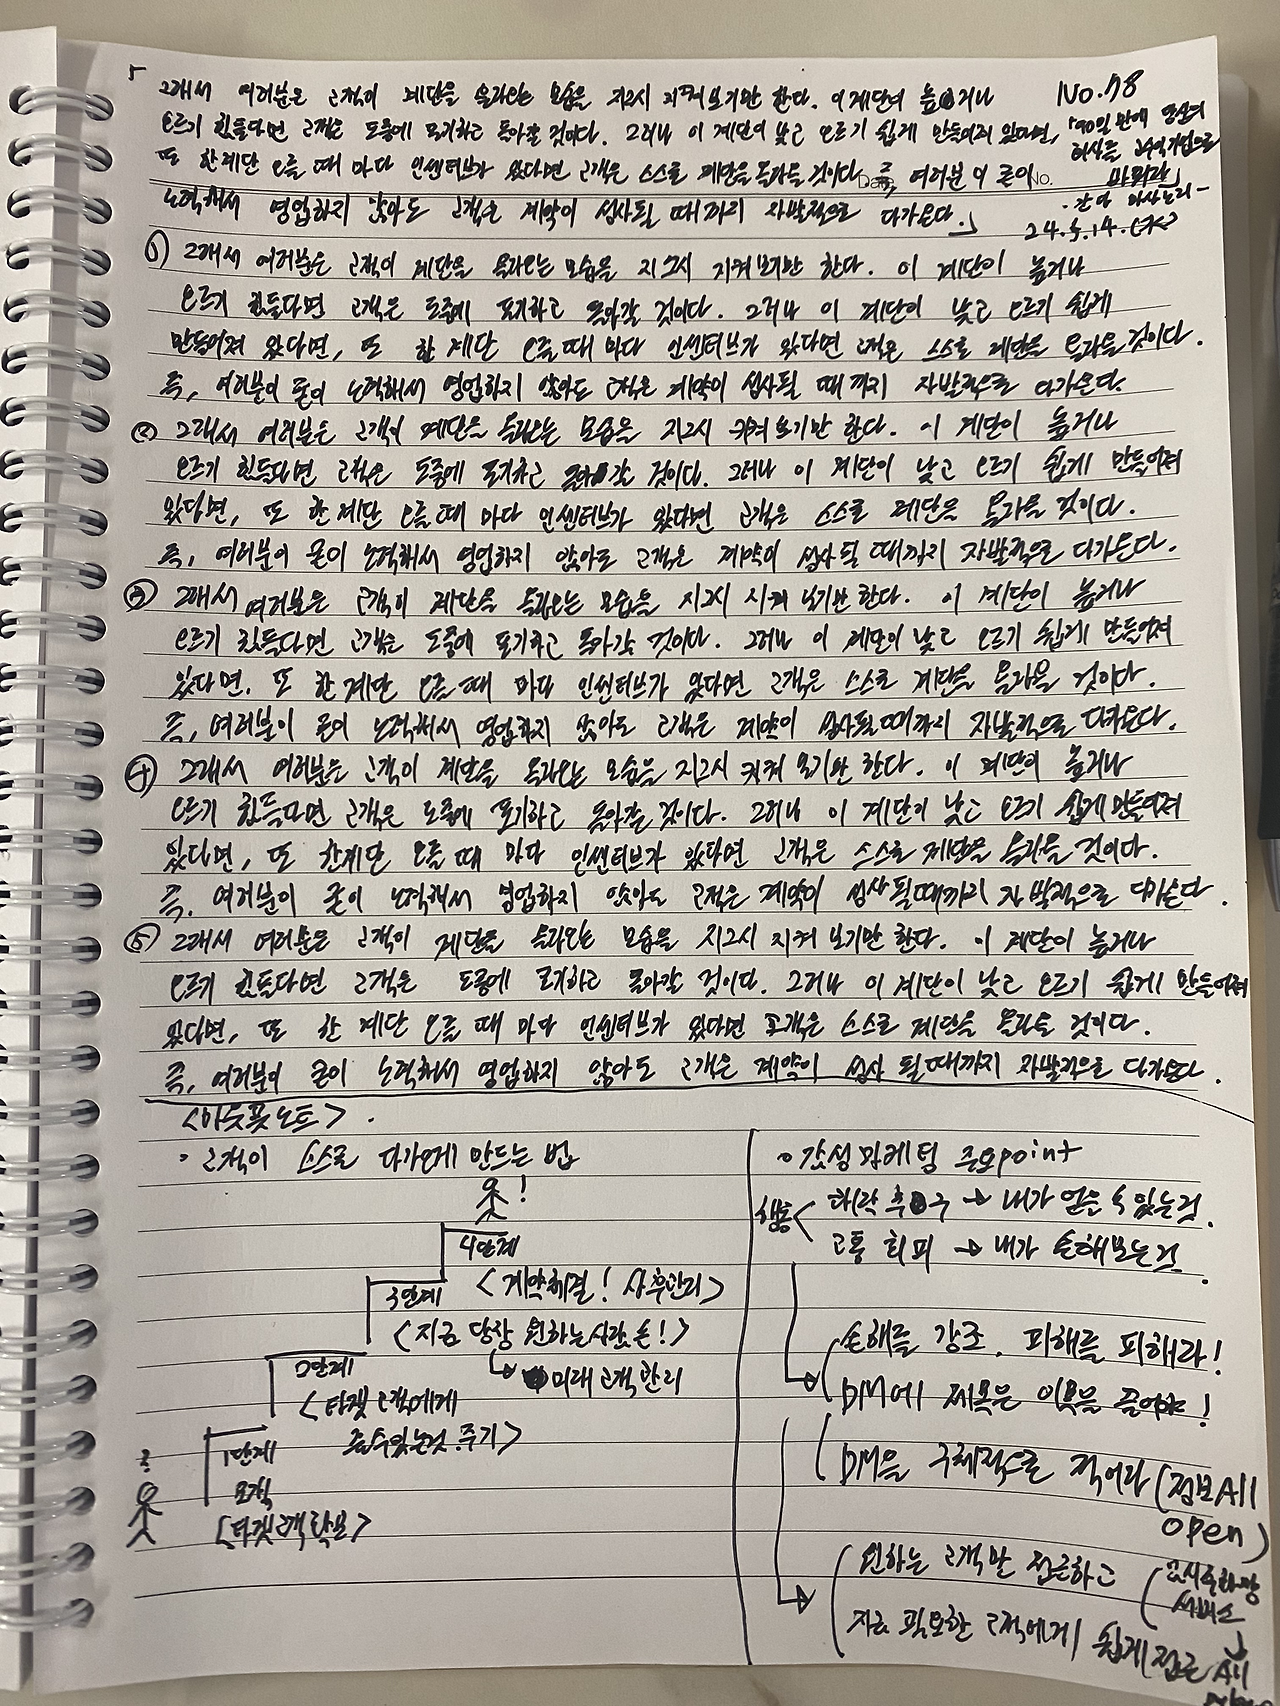 「그래서 여러분은 고객이 계단을 올라오는 모습을 지그시 지켜보기만 한다. 이 계단이 높거나
No.78
오르기 힘들다면 고객은 도중에 포기하고 돌아갈 것이다. 그러나 이 계단이 낮고 오르기 쉽게 만들어져 있다면,
「90일 만에 당신의
회사를 고수익 기업으로
바꿔라」
또 한 계단 오를 때 마다 인센티브가 있다면 고객은 스스로 계단을 올라올 것이다. 즉, 여러분이 굳이
Date. No.
노력해서 영업하지 않아도 고객은 계약이 성사될 때까지 자발적으로 다가온다.」
- 간다 마사노리 -
24. 5. 14. (화)
① 그래서 여러분은 고객이 계단을 올라오는 모습을 지그시 지켜보기만 한다. 이 계단이 높거나
오르기 힘들다면 고객은 도중에 포기하고 돌아갈 것이다. 그러나 이 계단이 낮고 오르기 쉽게
만들어져 있다면, 또 한 계단 오를 때 마다 인센티브가 있다면 고객은 스스로 계단을 올라올 것이다.
즉, 여러분이 굳이 노력해서 영업하지 않아도 고객은 계약이 성사될 때까지 자발적으로 다가온다.
② 그래서 여러분은 고객이 계단을 올라오는 모습을 지그시 지켜보기만 한다. 이 계단이 높거나
오르기 힘들다면 고객은 도중에 포기하고 돌아갈 것이다. 그러나 이 계단이 낮고 오르기 쉽게 만들어져
있다면, 또 한 계단 오를 때 마다 인센티브가 있다면 고객은 스스로 계단을 올라올 것이다.
즉, 여러분이 굳이 노력해서 영업하지 않아도 고객은 계약이 성사될 때까지 자발적으로 다가온다.
③ 그래서 여러분은 고객이 계단을 올라오는 모습을 지그시 지켜보기만 한다. 이 계단이 높거나
오르기 힘들다면 고객은 도중에 포기하고 돌아갈 것이다. 그러나 이 계단이 낮고 오르기 쉽게 만들어져
있다면, 또 한 계단 오를 때 마다 인센티브가 있다면 고객은 스스로 계단을 올라올 것이다.
즉, 여러분이 굳이 노력해서 영업하지 않아도 고객은 계약이 성사될 때까지 자발적으로 다가온다.
④ 그래서 여러분은 고객이 계단을 올라오는 모습을 지그시 지켜보기만 한다. 이 계단이 높거나
오르기 힘들다면 고객은 도중에 포기하고 돌아갈 것이다. 그러나 이 계단이 낮고 오르기 쉽게 만들어져
있다면, 또 한 계단 오를 때 마다 인센티브가 있다면 고객은 스스로 계단을 올라올 것이다.
즉, 여러분이 굳이 노력해서 영업하지 않아도 고객은 계약이 성사될 때까지 자발적으로 다가온다.
⑤ 그래서 여러분은 고객이 계단을 올라오는 모습을 지그시 지켜보기만 한다. 이 계단이 높거나
오르기 힘들다면 고객은 도중에 포기하고 돌아갈 것이다. 그러나 이 계단이 낮고 오르기 쉽게 만들어져
있다면, 또 한 계단 오를 때 마다 인센티브가 있다면 고객은 스스로 계단을 올라올 것이다.
즉, 여러분이 굳이 노력해서 영업하지 않아도 고객은 계약이 성사 될 때까지 자발적으로 다가온다.
<아웃풋 노트>.
· 고객이 스스로 다가오게 만드는 법
!
4단계
<계약체결! 사후관리>
3단계
<지금 당장 원하는 사람 손!>
↳ 미래 고객 관리
2단계
<타겟 고객에게
줄 수 있는 것 주기>
1단계
모객
<타겟고객 확보>
?
· 감성마케팅 주요point
행동 < 쾌락 추구 → 내가 얻을 수 있는 것.
고통 회피 → 내가 손해보는 것.
손해를 강조. 피해를 피해라!
DM에 제목은 이목을 끌어야!
DM을 구체적으로 적어라 (정보All
open)
원하는 고객만 접근하고
지금 필요한 고객에게 쉽게 접근
서비스
↓
All